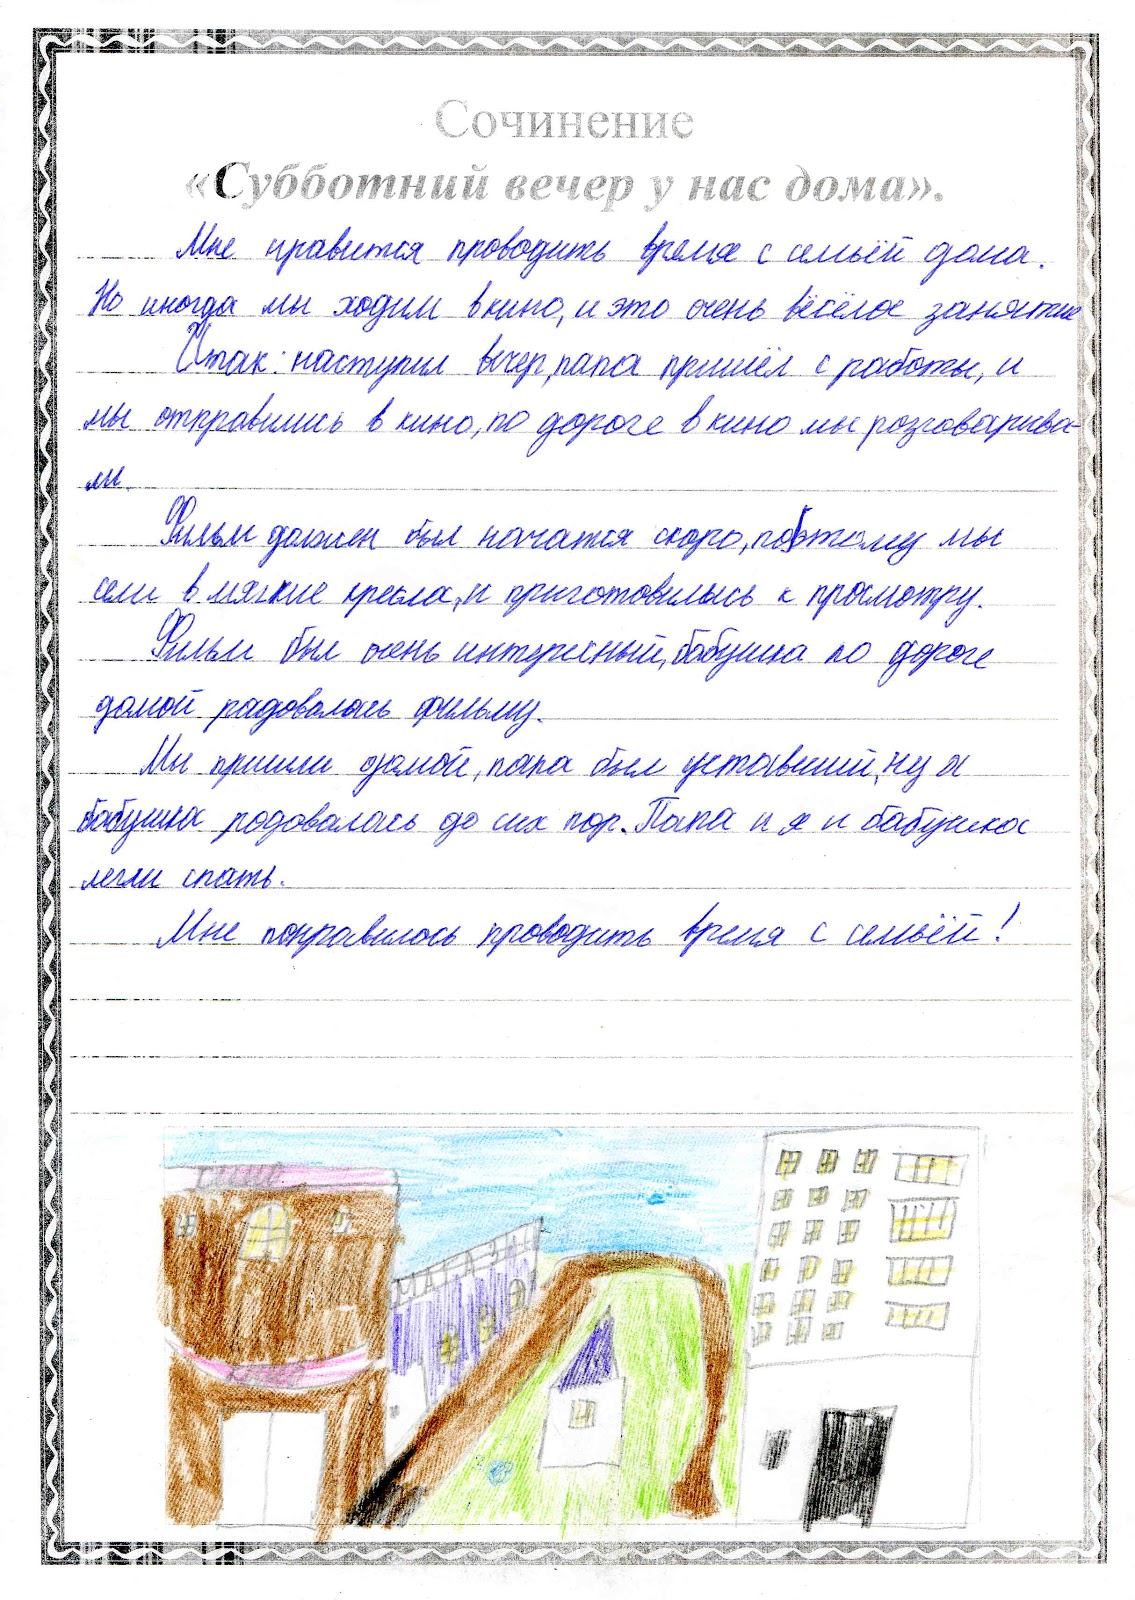 Сочинение
«Субботний вечер у нас дома».
Мне нравится проводить время с семьёй дома.
Но иногда мы ходим в кино, и это очень вёсёлое занятие
Итак: наступил вечер, папа пришёл с работы, и
мы отправились в кино, по дороге в кино мы розговарива-
ли.
Фильм должен был начатся скоро, поэтому мы
сели в мягкие кресла, и приготовились к просмотру.
Фильм был очень интересный, бабушка по дороге
домой радовалась фильму.
Мы пришли домой, папа был уставший, ну а
бабушка родовалась до сих пор. Папа и я и бабушка
легли спать.
Мне понравилось проводить время с семьёй!
КИНО
МАГАЗИН